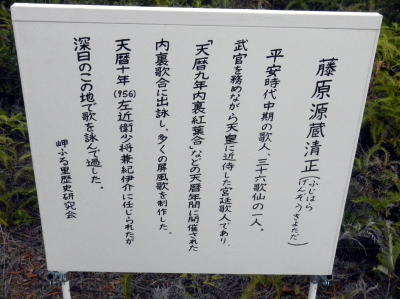 藤原源蔵清正(ふじはらげんぞうきよただ)
平安時代中期の歌人、三十六歌仙の一人。
武官を務めながら天皇に近侍した宮廷歌人であり、
「天暦九年内裏紅葉合」などの天暦年間に開催された
内裏歌合に出詠し、多くの屏風歌を制作した。
天暦十年(956)左近衛少将兼紀伊介に任じられたが
深日のこの地で歌を詠んで過した。
岬ふる里歴史研究会